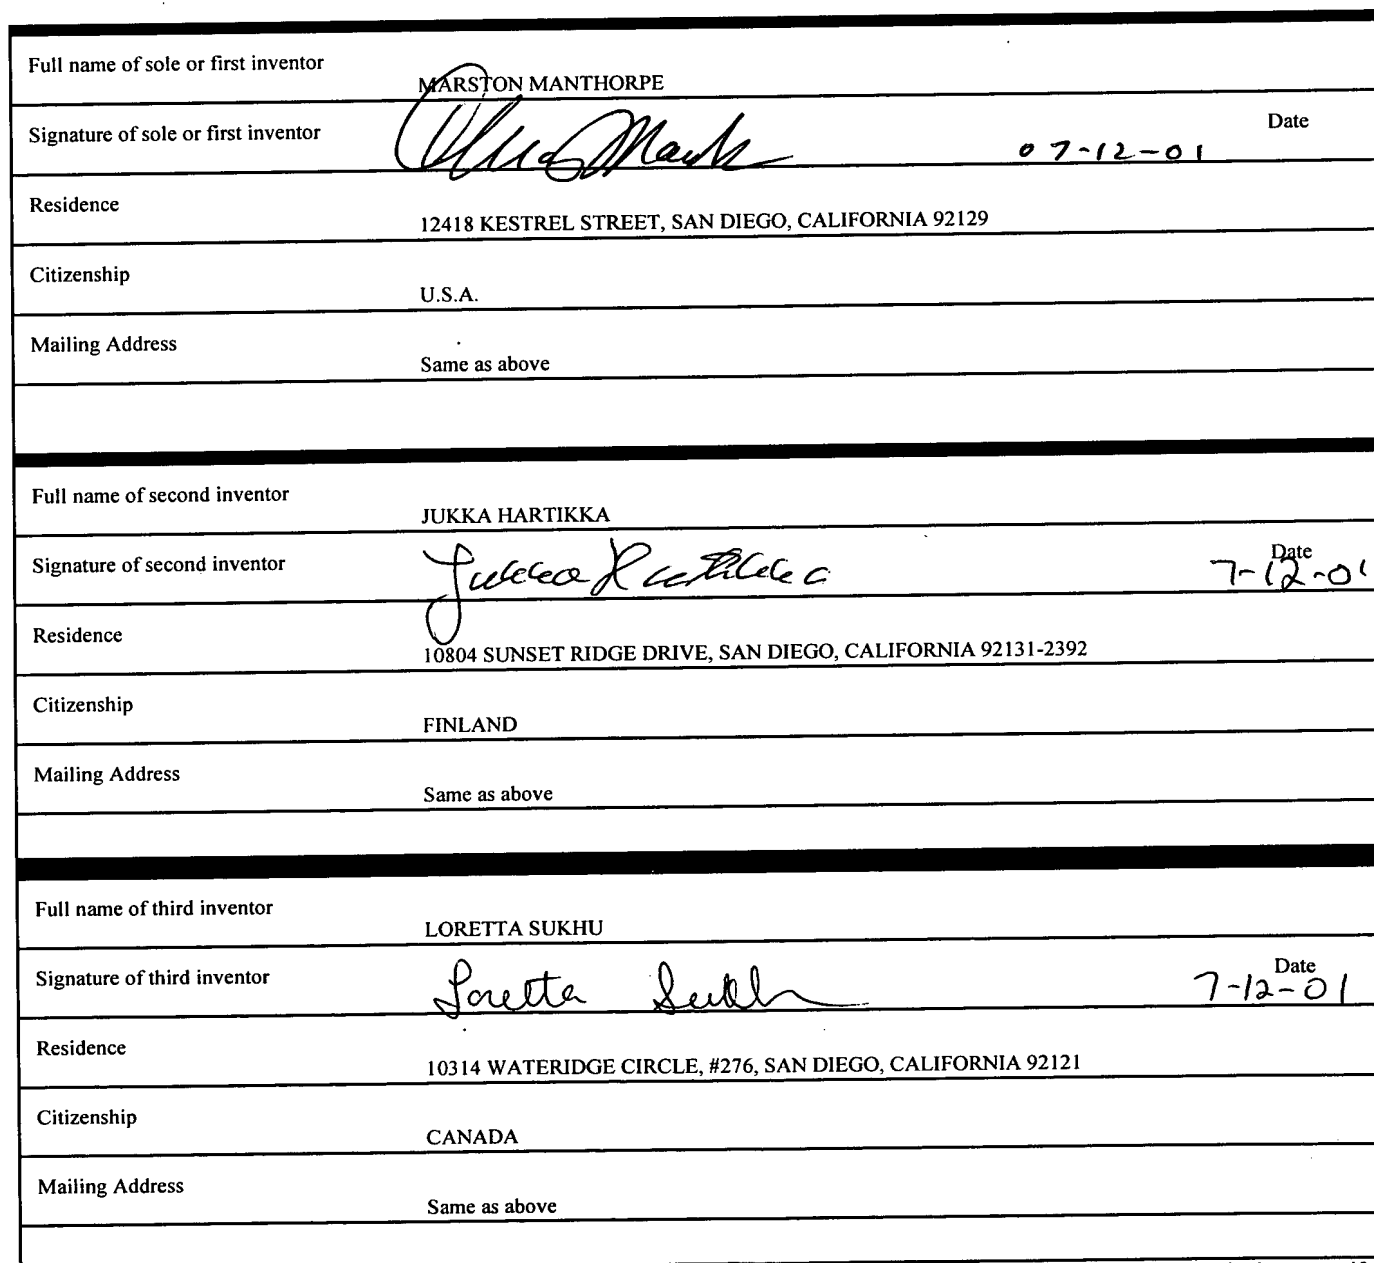 Full name of sole or first inventor
MARSTON MANTHORPE
Signature of sole or first inventor
Date
07-12-01
Residence
12418 KESTREL STREET, SAN DIEGO, CALIFORNIA 92129
Citizenship
U.S.A.
Mailing Address
Same as above
Full name of second inventor
JUKKA HARTIKKA
Signature of second inventor
Jukka Hartikka
Date
7-12-01
Residence
10804 SUNSET RIDGE DRIVE, SAN DIEGO, CALIFORNIA 92131-2392
Citizenship
FINLAND
Mailing Address
Same as above
Full name of third inventor
LORETTA SUKHU
Signature of third inventor
Loretta Sukhu
Date
7-12-01
Residence
10314 WATERIDGE CIRCLE, #276, SAN DIEGO, CALIFORNIA 92121
Citizenship
CANADA
Mailing Address
Same as above